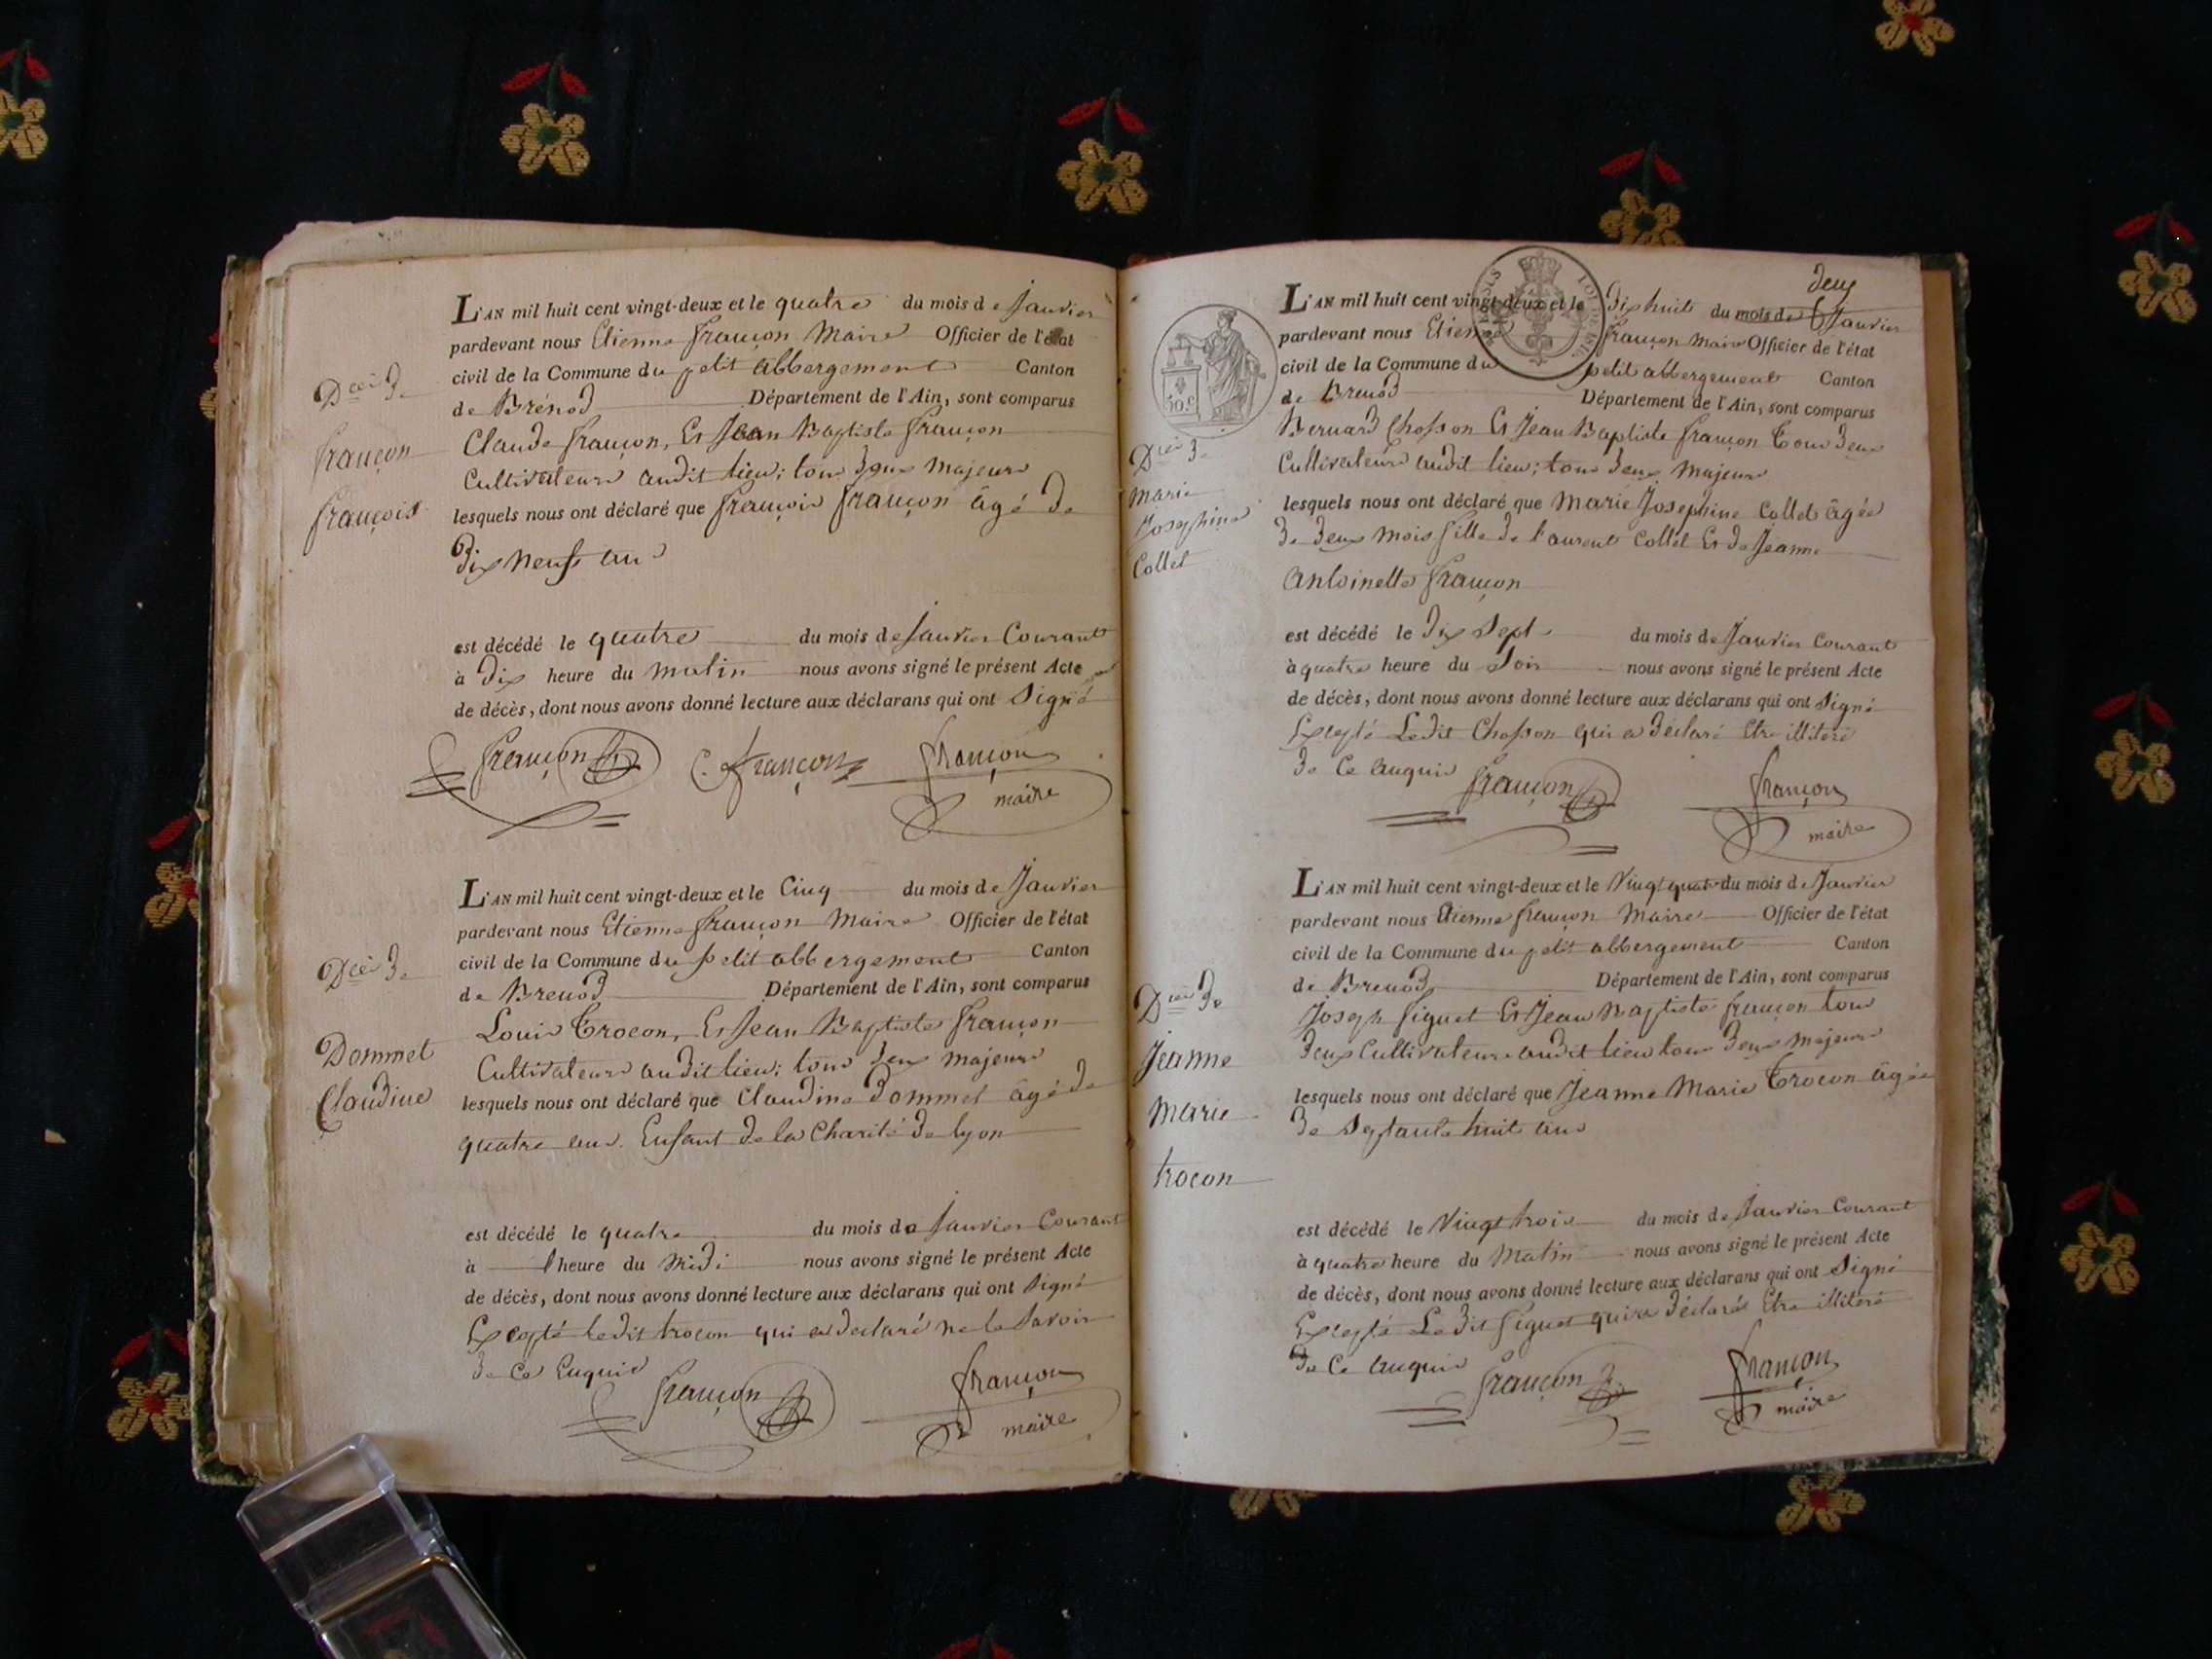 L'AN mil huit cent vingt-deux et le quatre du mois de Janvier
pardevant nous Etienne françon Maire Officier de l'état
civil de la Commune du petit abbergement Canton
de Brénod Département de l'Ain, sont comparus
Claude françon, Et Jean Baptiste françon
Cultivateurs audit lieu; tous deux majeurs
lesquels nous ont déclaré que françois françon âgé de
dix neuf ans
est décédé le quatre du mois de Janvier Courant
à dix heure du matin nous avons signé le présent Acte
de décès, dont nous avons donné lecture aux déclarans qui ont Signé
françon C. françon françon
maire
Dcès de
françon
françois
L'AN mil huit cent vingt-deux et le Cinq du mois de Janvier
pardevant nous Etienne françon Maire Officier de l'état
civil de la Commune du petit abbergement Canton
de Brenod Département de l'Ain, sont comparus
Louis Trocon, Et Jean Baptiste françon
Cultivateurs audit lieu; tous deux majeurs
lesquels nous ont déclaré que Claudine Dommet âgé de
quatre ans. Enfant de la Charité de lyon
est décédé le quatre du mois de Janvier Courant
à heure du Midi nous avons signé le présent Acte
de décès, dont nous avons donné lecture aux déclarans qui ont Signé
Excepté ledit trocon qui a declaré ne le Savoir
de ce Enquis
françon françon
maire
Dcès de
Dommet
Claudine
deux
L'AN mil huit cent vingt-deux et le dix huit du mois de Janvier
pardevant nous Etienne françon Maire Officier de l'état
civil de la Commune du petit abbergement Canton
de Brenod Département de l'Ain, sont comparus
Bernard Chosson Et Jean Baptiste françon Tous deux
Cultivateurs audit lieu; tous deux majeurs
lesquels nous ont déclaré que Marie Josephine Collet âgée
de deux mois fille de Laurent Collet Et de Jeanne
Antoinette françon
est décédé le dix Sept du mois de Janvier Courant
à quatre heure du Soir nous avons signé le présent Acte
de décès, dont nous avons donné lecture aux déclarans qui ont Signé
Excepté Ledit Chosson qui a déclaré Etre illiteré
de Ce Enquis
françon françon
maire
50 C.
Dcès de
Marie
Josephine
Collet
L'AN mil huit cent vingt-deux et le Vingt quatre du mois de Janvier
pardevant nous Etienne françon Maire Officier de l'état
civil de la Commune du petit abbergement Canton
de Brenod Département de l'Ain, sont comparus
Joseph Figuet Et Jean Baptiste françon tous
deux Cultivateurs audit lieu tous deux majeurs
lesquels nous ont déclaré que Jeanne Marie Trocon âgée
de Septante huit ans
est décédé le Vingt trois du mois de Janvier Courant
à quatre heure du Matin nous avons signé le présent Acte
de décès, dont nous avons donné lecture aux déclarans qui ont Signé
Excepté Le dit Figuet qui a déclaré Etre illiteré
de Ce Enquis
françon françon
maire
Dcès de
Jeanne
Marie
trocon